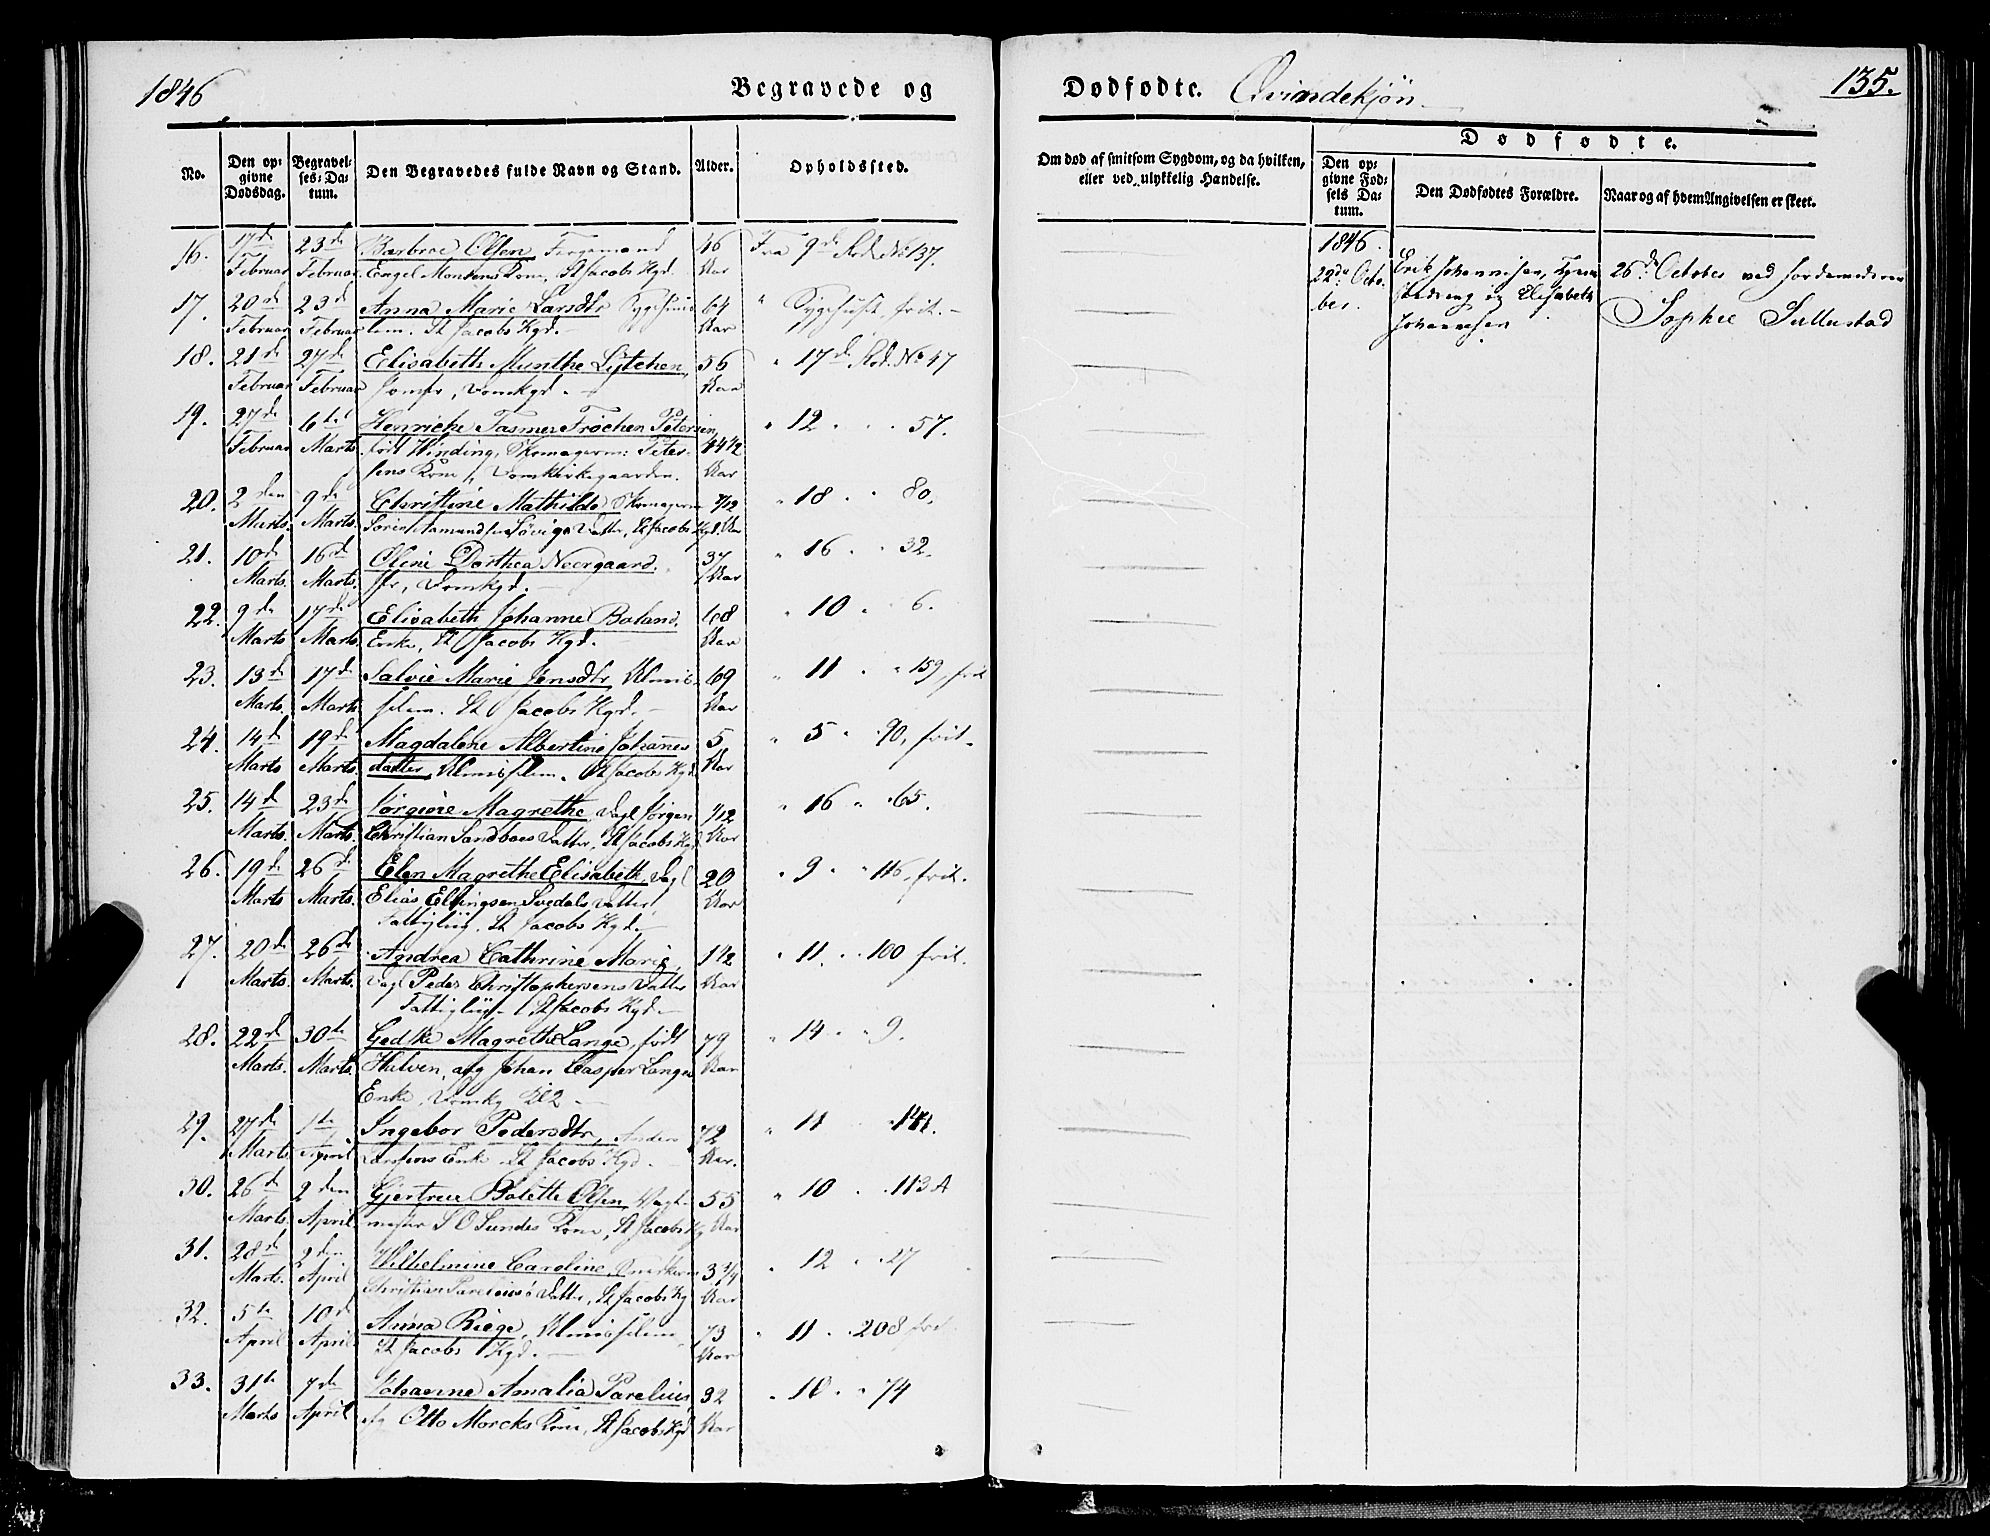 1846
Begravede og
No.
Den opgivne Dødsdag.
Begravelses-Datum.
Den Begravedes fulde Navn og Stand.
Alder.
Opholdssted.
16. 17de 23de Barbroe Olsen 46 Fra 9de Rd. No 137.
Februar Februar Engel Monsens Kone, St Jacobs Kgd. Aar
17. 20de 23de Anna Marie Larsdtr 64 " Sygehuset, frit. -
Februar Februar lem. St Jacobs Kgd. - Aar
18. 21de 27de Elisabeth Munthe Lytchen, 56 " 17de Rd. No 47
Februar Februar Jomfr, Domkgd. - Aar
19. 27de 6te Henricke Fasmer Frochen Petersen, " 12 . . 57.
Februar Marts født Winding, Skomagerm: Peter- 44½
sens Kone, Domkirkegaarden. Aar
20. 2den 9de Christine Mathilde Skomagerm 7/12 " 18 . . 80.
Marts. Marts. Søren Amundsen Datter, St Jacobs Kgd. Aar
21. 10de 16de Oline Dorthea Neergaard. 37 " 16 . . 32.
Marts. Marts. Jfr, Domkgd. - Aar
22. 9de 17de Elisabeth Johanne Boland. 68 " 10 . . 6.
Marts Marts. Enke, St Jacobs Kgd. - Aar
23. 13de 17de Salvie Marie Jensdtr, Almis- 69 " 11 . " 159, frit
Marts. Marts. selem. St Jacobs Kgd. - Aar
24. 14de 19de Magdalene Albertine Johannes 5 " 5 " 90, frit.
Marts Marts. datter, Almisselem. St Jacobs Kgd. Aar
25. 14de 23de Jørgine Magrethe, Dagl Jørgen 1/12 " 16 " 65.
Marts. Marts. Christian Sandboes Datter, St Jacobs Kgd Aar
26. 19de 26de Elen Magrethe Elisabeth, Dagl 20 " 9 . " 116, frit.
Marts Marts. Elias Ellingsen Svedals Datter Aar
Fattiglig. St Jacobs Kgd. -
27. 20de 26de Andrea Cathrine Marie, 1½ " 11. . . 100 frit.
Marts. Marts. Dagl Peder Christophersens Datter Aar
Fattiglig - St Jacobs Kgd. -
28. 22de 30te Gedske Magrethe Lange, født 79 " 14 " " 9.
Marts. Marts. Hulven, afg Johan Casper Langes Aar
Enke, Domkg -
29. 27de 1te Ingebor Pedersdtr, Anders 72 " 11
Marts April Larsens Enke. St Jacobs Kgd. - Aar.
30. 26de 2den Gjertrue Bolette Olsen, Vagt- 55 " 10 . . 113 A
Marts. April. mester S O Sundes Kone, St Jacobs Kg Aar
31. 28de 2den Wilhelmine Caroline, Snedkerm 3¾ " 12 " " 27
Marts. April Christian Parelius Datter, St Jacobs Kg Aar
32. 5te 10de Anna Riege, Almisselem 73 " 11 . . 208 frit.
April April St Jacobs Kgd. - Aar
33. 31te 7de Johanne Amalia Parelius, 32 " 10 . . 74
Marts April. Otto Morcks Kone, St Jacobs Kgd Aar
Dødfødte. Qvindekjøn
135.
Om død af smitsom Sygdom, og da hvilken, eller ved ulykkelig Hændelse.
Dødfødte.
Den opgivne Fødsels Datum.
Den Dødfødtes Forældre.
Naar og af hvem Angivelsen er skeet.
1846.
22de Octo- Erik Johannesen, 26de October ved Jordemoderen
ber. og Elisabeth Sophie Sællustad
Johannesen